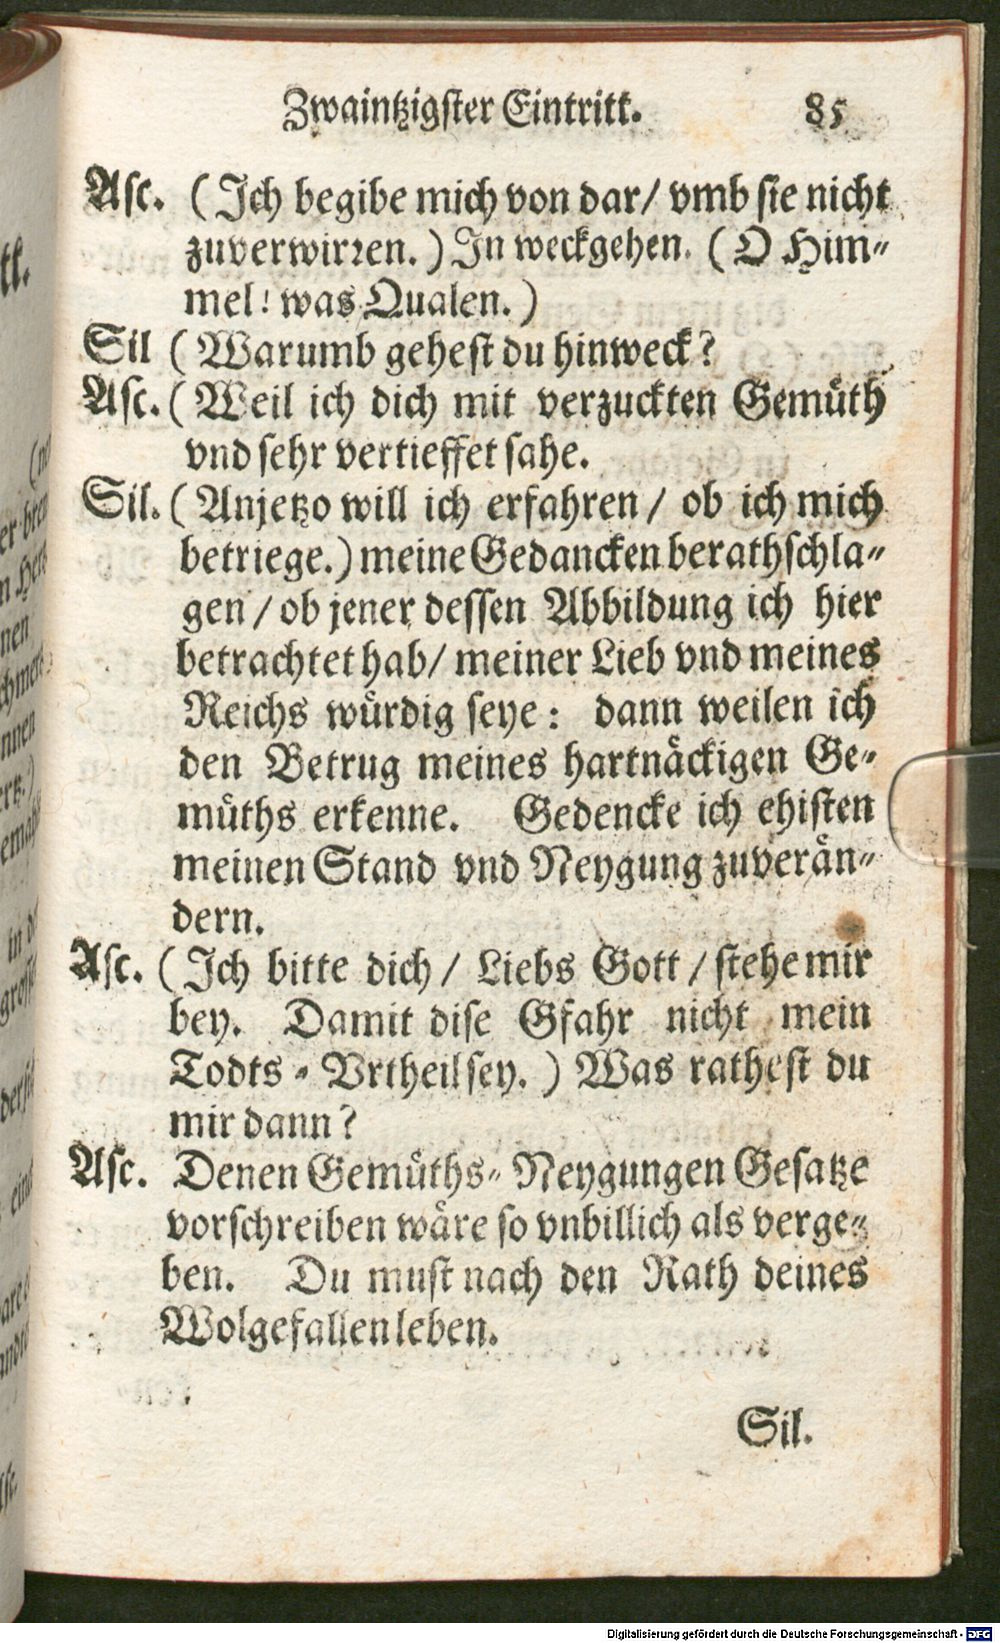 Zwaintzigster Eintritt. 85
Asc. (Ich begibe mich von dar/ vmb sie nicht
zuverwirren.) In weckgehen. (O Him-
mel! was Qualen.)
Sil (Warumb gehest du hinweck?
Asc. (Weil ich dich mit verzuckten Gemüth
vnd sehr vertieffet sahe.
Sil. (Anjetzo will ich erfahren / ob ich mich
betriege.) meine Gedancken berathschla-
gen / ob jener dessen Abbildung ich hier
betrachtet hab/ meiner Lieb vnd meines
Reichs würdig seye: dann weilen ich
den Betrug meines hartnäckigen Ge-
müths erkenne. Gedencke ich ehisten
meinen Stand vnd Neygung zuverän-
dern.
Asc. (Ich bitte dich / Liebs Gott / stehe mir
bey. Damit dise Gfahr nicht mein
Todts - Vrtheil sey.) Was rathest du
mir dann?
Asc. Denen Gemüths- Neygungen Gesatze
vorschreiben wäre so vnbillich als verge-
ben. Du must nach den Rath deines
Wolgefallen leben.
Sil.
Digitalisierung gefördert durch die Deutsche Forschungsgemeinschaft - DFG